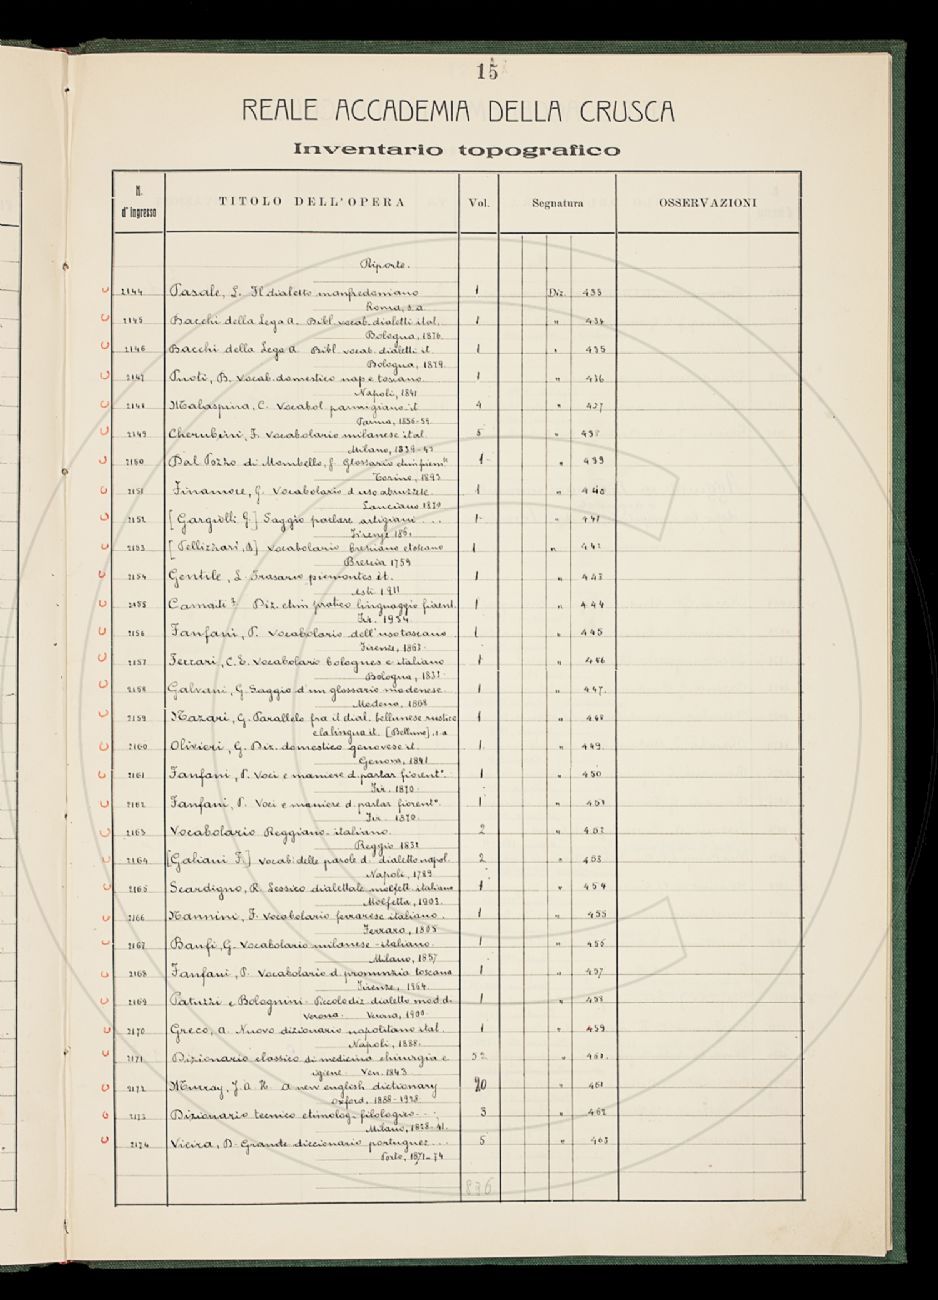 15
REALE ACCADEMIA DELLA CRUSCA
Inventario topografico
N. d'Ingresso TITOLO DELL'OPERA Vol. Segnatura OSSERVAZIONI
Riporto.
2144 Pasale, L. Il dialetto manfredoniano 1 Diz. 433
Roma, s.a
2145 Bacchi della Lega A. Bibl. vocab. dialetti ital. 1 " 434
Bologna, 1876
2146 Bacchi della Lega A Bibl. vocab. dialetti it 1 " 435
Bologna, 1879
2147 Puoti, B. Vocab. domestico nap e toscano 1 " 436
Napoli, 1841
2148 Malaspina, C. Vocabol parmigiano it 4 " 437
Parma, 1856-59
2149 Cherubini, F. Vocabolario milanese ital. 5 " 438
Milano, 1839-43
2150 Dal Pozzo di Mombello, G. Glossario etim piem. 1 " 439
Torino, 1893
2151 Finamore, G. Vocabolario d uso abruzzese. 1 " 440
Lanciano 1880
2152 [Gargiolli G.] Saggio parlare artigiani ... 1 " 441
Firenze
2153 [Pellizzari, B] Vocabolario bresciano e toscano 1 " 442
Brescia 1759
2154 Gentile, L. Frasario piemontes it. 1 " 443
Asti 1911
2155 Diz. etim pratico linguaggio fiorent. 1 " 444
Fir. 1934
2156 Fanfani, P. Vocabolario dell'uso toscano 1 " 445
Firenze, 1863
2157 Ferrari, C. E. Vocabolario bolognes e italiano 1 " 446
Bologna,
2158 Galvani, G. Saggio d'un glossario modenese 1 " 447.
Modena, 1868
2159 Nazari, G. Parallelo fra il dial. bellunese rustico 1 " 448
e la lingua it. [Belluno], s.a
2160 Olivieri, G. Diz. domestico genovese it. 1 " 449.
Genova, 1841
2161 Fanfani, P. Voci e maniere d. parlar fiorent°. 1 " 450
Fir. 1870.
2162 Fanfani, P. Voci e maniere d. parlar fiorent°. 1 " 451
Fir. 1870.
2163 Vocabolario Reggiano-italiano. 2 " 452
Reggio 1832
2164 [Galiani F.] Vocab. delle parole d. dialetto napol. 2 " 453
Napoli, 1789
2165 Scardigno, R. Lessico dialettale molfett. italiano 1 " 454
Molfetta, 1903.
2166 Nannini, F. Vocabolario ferrarese italiano. 1 " 455
Ferrara, 1805
2167 Banfi, G. Vocabolario milanese-italiano. 1 " 456
Milano, 1857
2168 Fanfani, P. Vocabolario d. pronunzia toscana 1 " 457
Firenze,
2169 Patuzzi e Bolognini Piccolo diz dialetto mod. di 1 " 458
Verona. Verona, 1900.
2170 Greco, A. Nuovo dizionario napolitano ital. 1 " 459
Napoli, 1888.
2171 Dizionario classico di medicina chirurgia e 52 " 460.
igiene. Ven. 1843
2172 Murray, J. A. H. A new english dictionary 20 " 461
Oxford, 1888-1928
2173 Dizionario tecnico etimolog.-filologico 3 " 462
Milano, 1828-41.
2174 Vieira, D. Grande diccionario portuguez ... 5 " 463
Porto, 1871-74
836